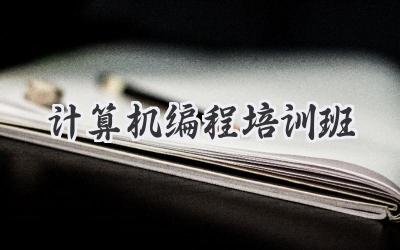 计算机编程培训班